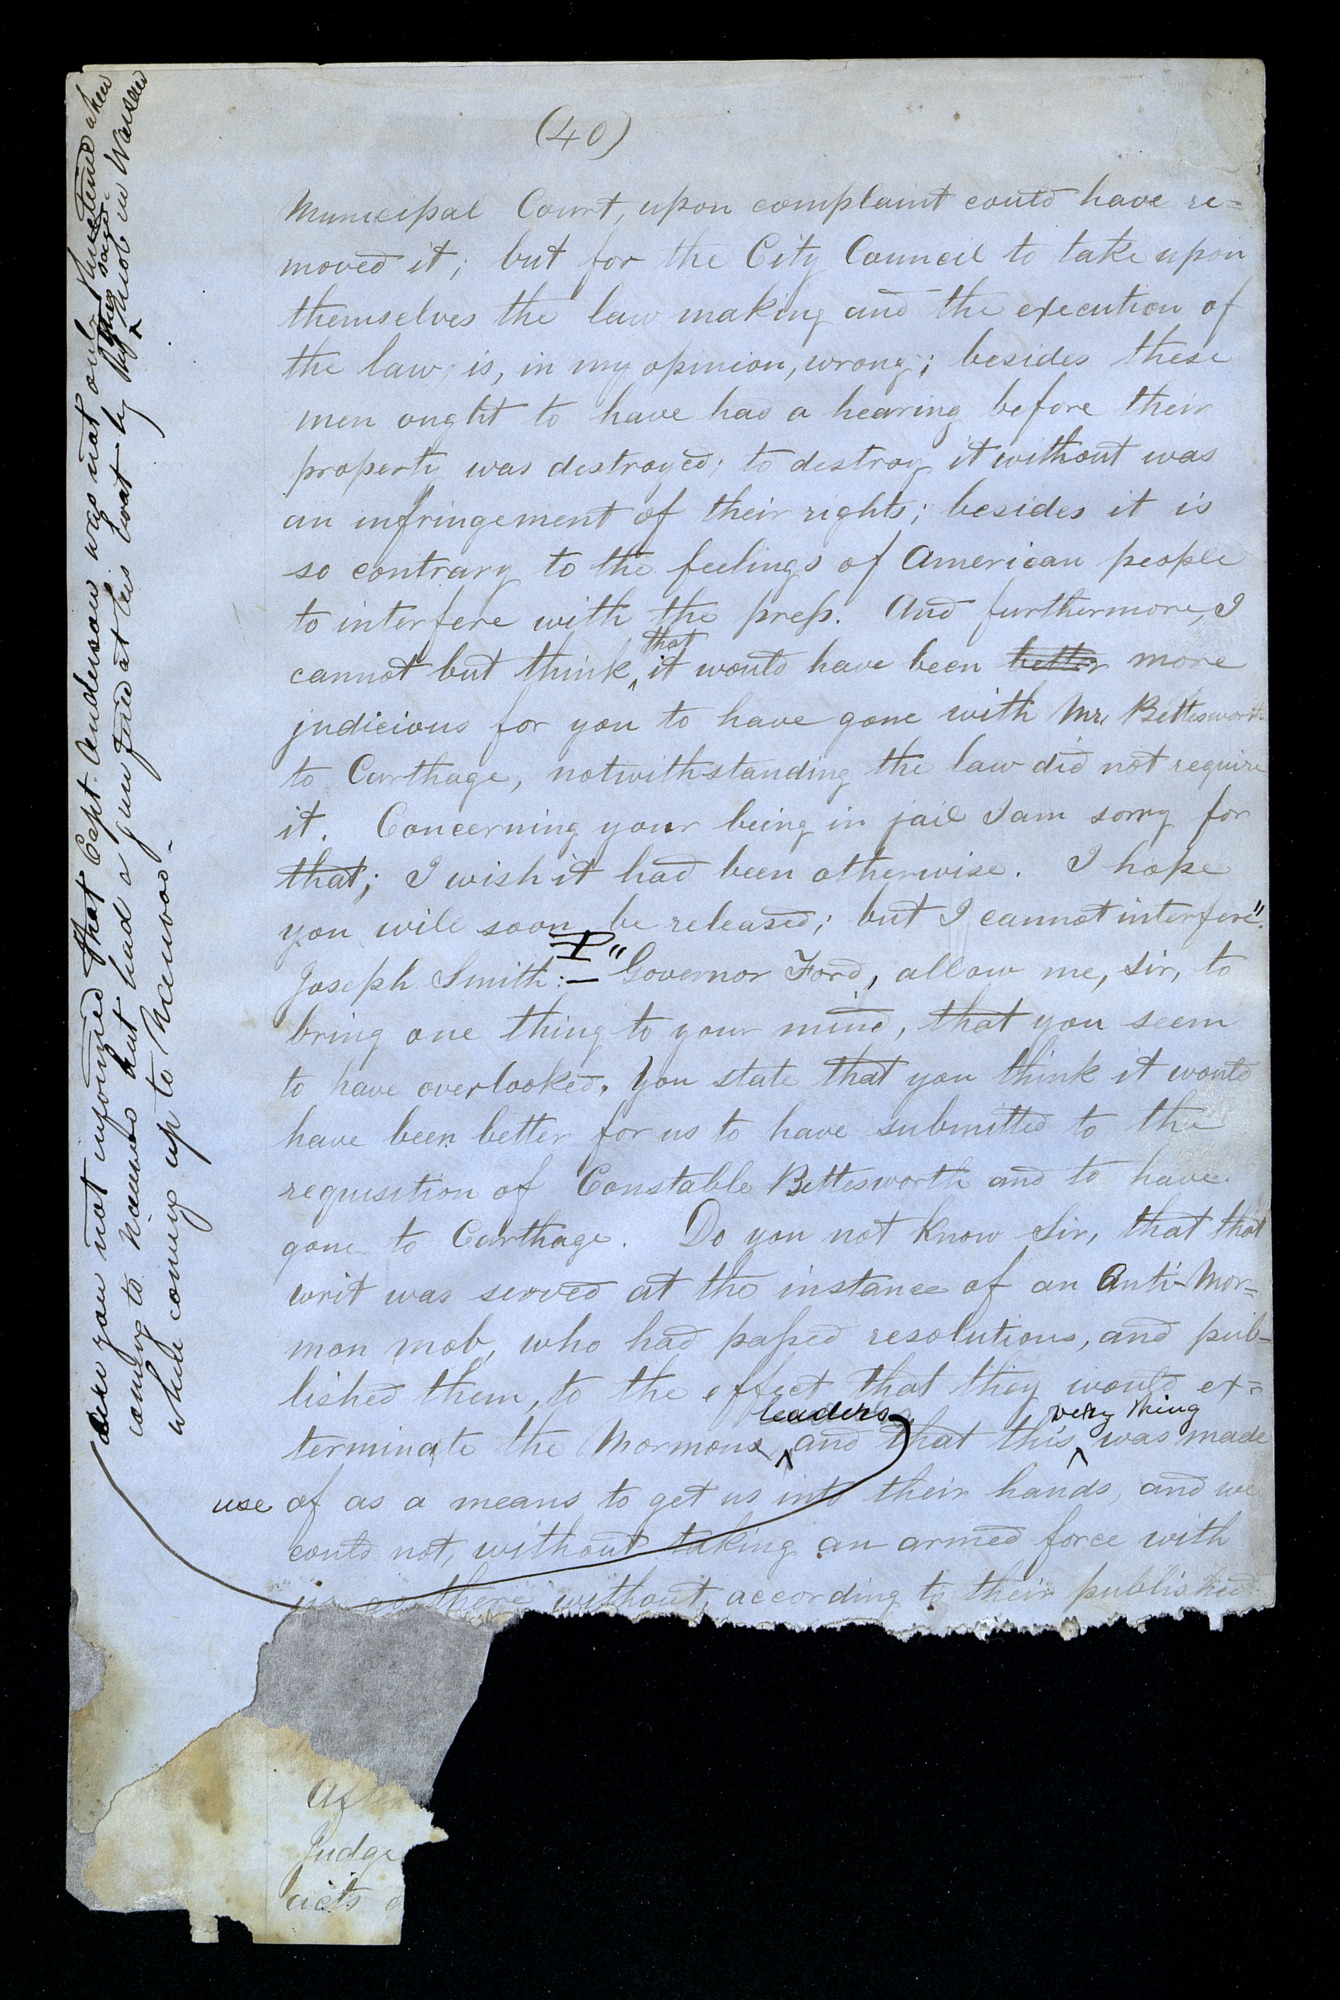 (40)
Municipal Court, upon complaint could have re=
moved it; but for the City Council to take upon
themselves the law making and the execution of
the law, is, in my opinion, wrong; besides these
men ought to have had a hearing before their
property was destroyed; to destroy it without was
an infringement of their rights; besides it is
so contrary to the feelings of American people
to interfere with the press. And furthermore, I
that
cannot but think, it would have been better more
judicious for you to have gone with Mr. Bettesworth
to Carthage, notwithstanding the law did not require
it. Concerning your being in jail I am sorry for
that; I wish it had been otherwise. I hope
you will soon be released; but I cannot interfere".
Joseph Smith:— "Governor Ford, allow me, sir, to
bring one thing to your mind, that you seem
to have overlooked. You state that you think it would
have been better for us to have submitted to the
requisition of Constable Bettesworth and to have
gone to Carthage. Do you not know Sir, that that
writ was served at the instance of an Anti-Mor=
mon mob, who had passed resolutions, and pub-
lished them, to the effect that they would ex=
leaders very thing
terminate the Mormons, and that this was made
use of as a means to get us into their hands, and we
could not, without taking an armed force with
us go there without, according to their published
After
Judge
acts
are you not informed that Capt. Anderson was not only threatened when
coming to Nauvoo but had a gun fired at his boat by this said mob in Warsaw
when coming up to Nauvoo-